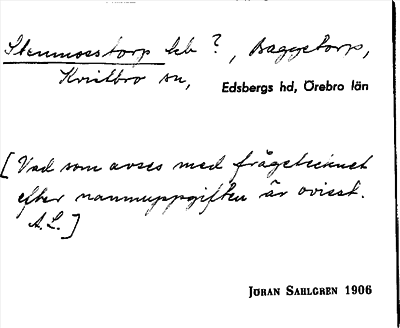 Stenmosstorp lht ?, Baggetorp,
Kvistbro sn, Edsbergs hd, Örebro län
[Vad som avses med frågetecknet
efter namnuppgiften är ovisst.
A.L.]
JÖRAN SAHLGREN 1906